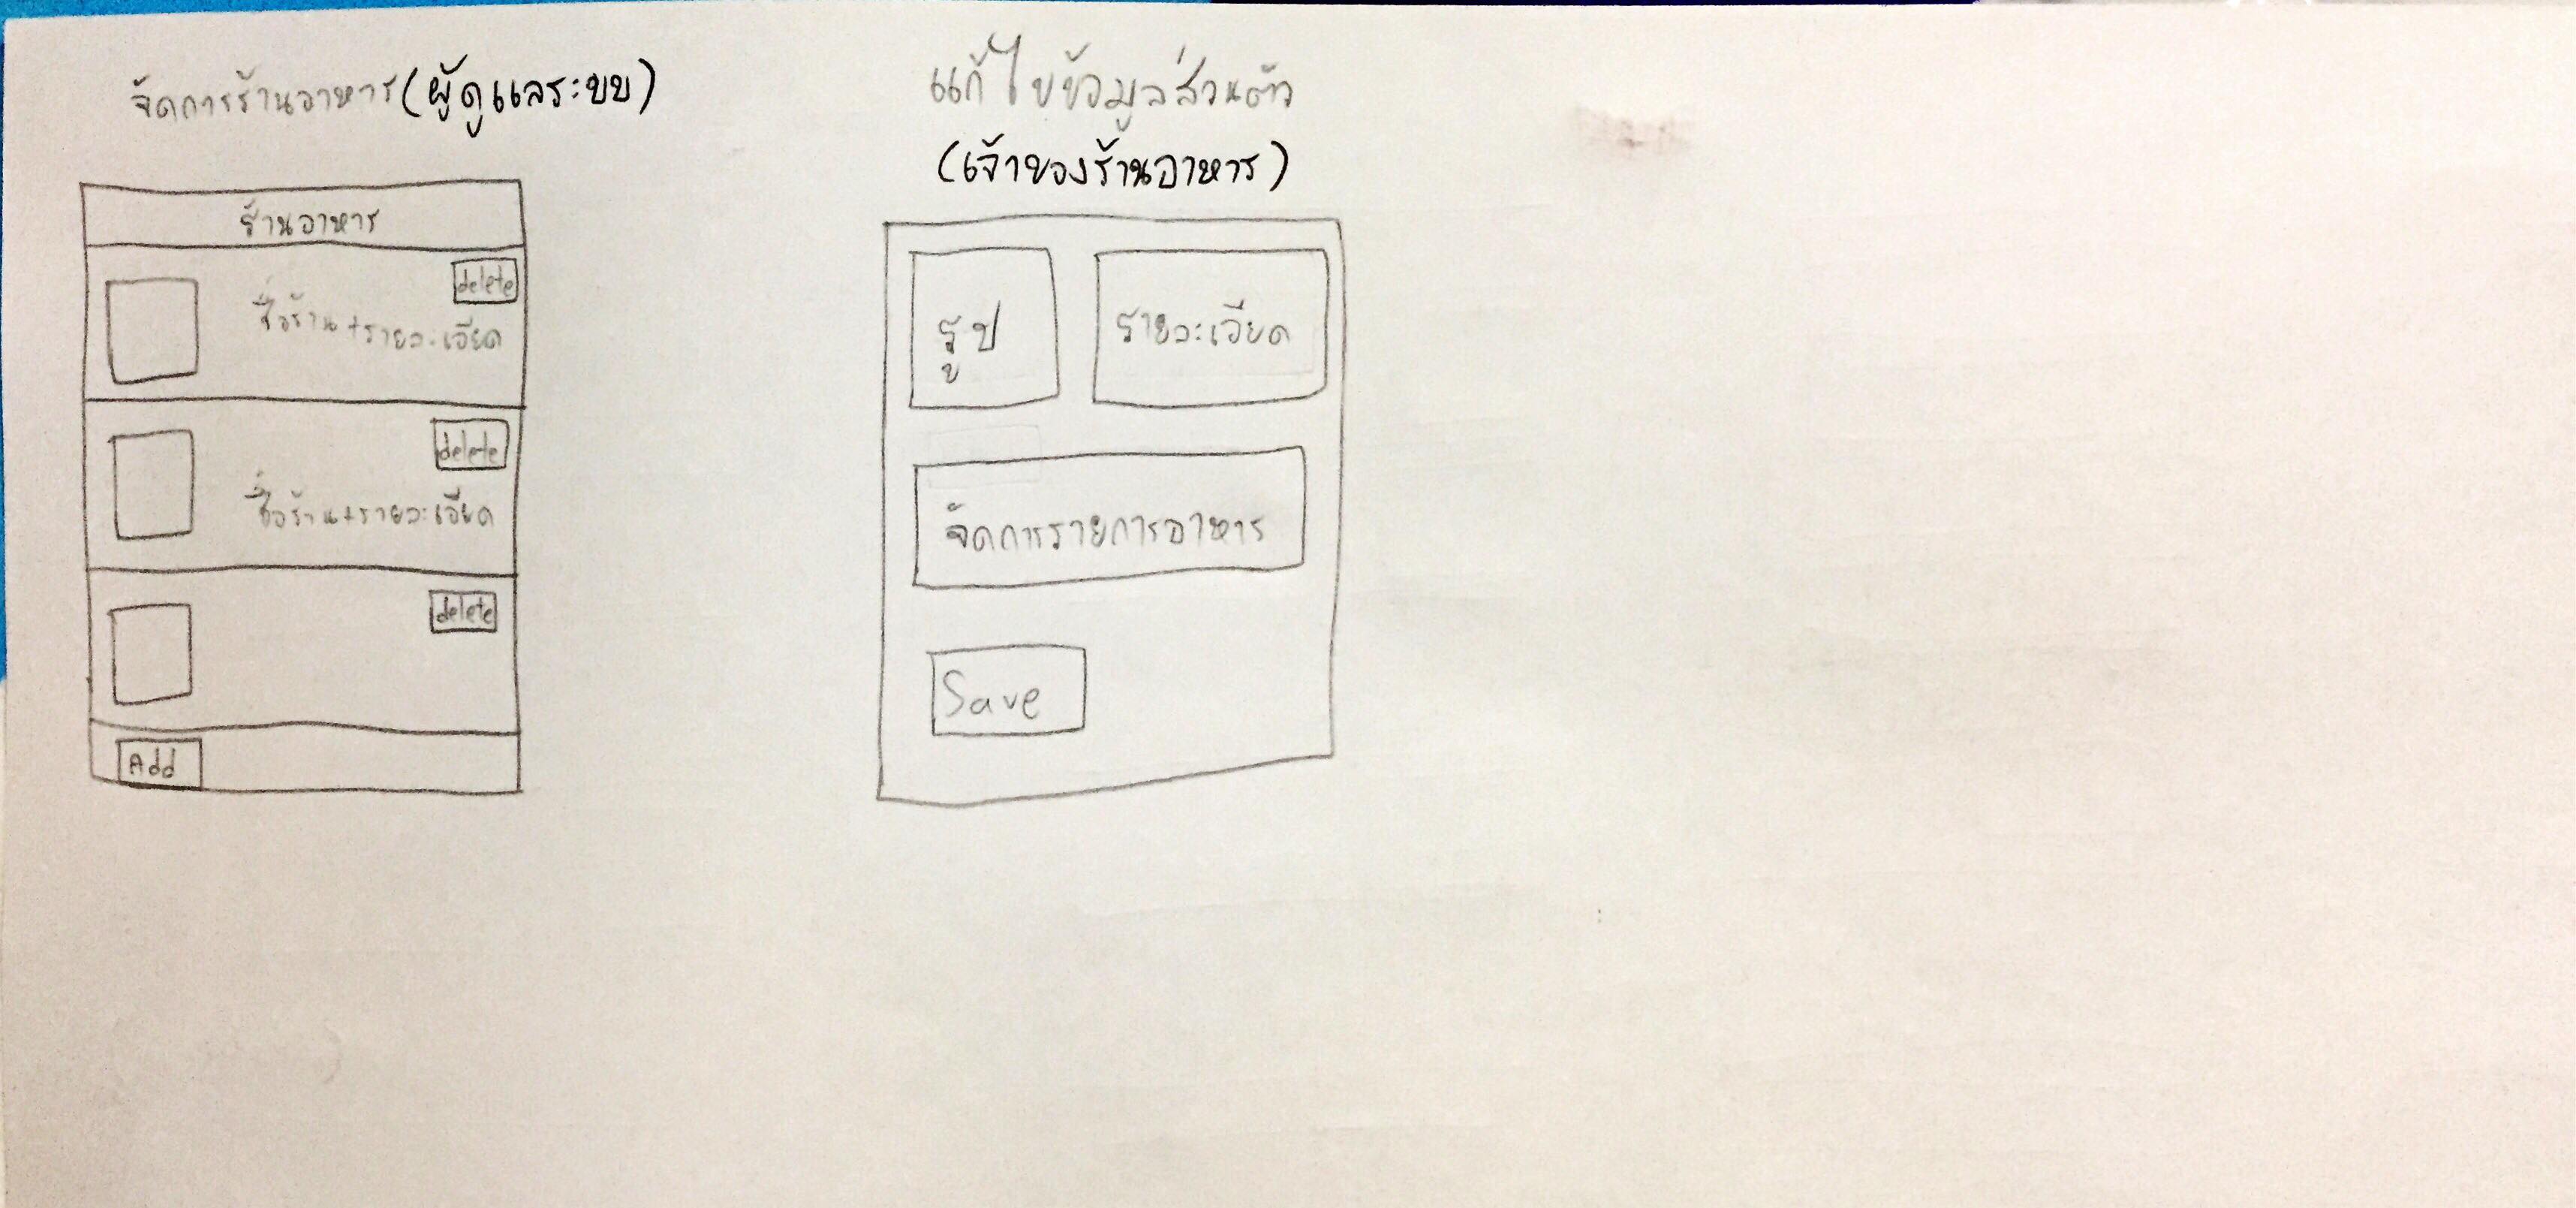 จัดการร้านอาหาร(ผู้ดูแลระบบ)
ร้านอาหาร
delete
ชื่อร้าน+รายละเอียด
delete
ชื่อร้าน+รายละเอียด
delete
Add
แก้ไขข้อมูลส่วนตัว
(เจ้าของร้านอาหาร)
รูป
รายละเอียด
จัดการรายการอาหาร
Save